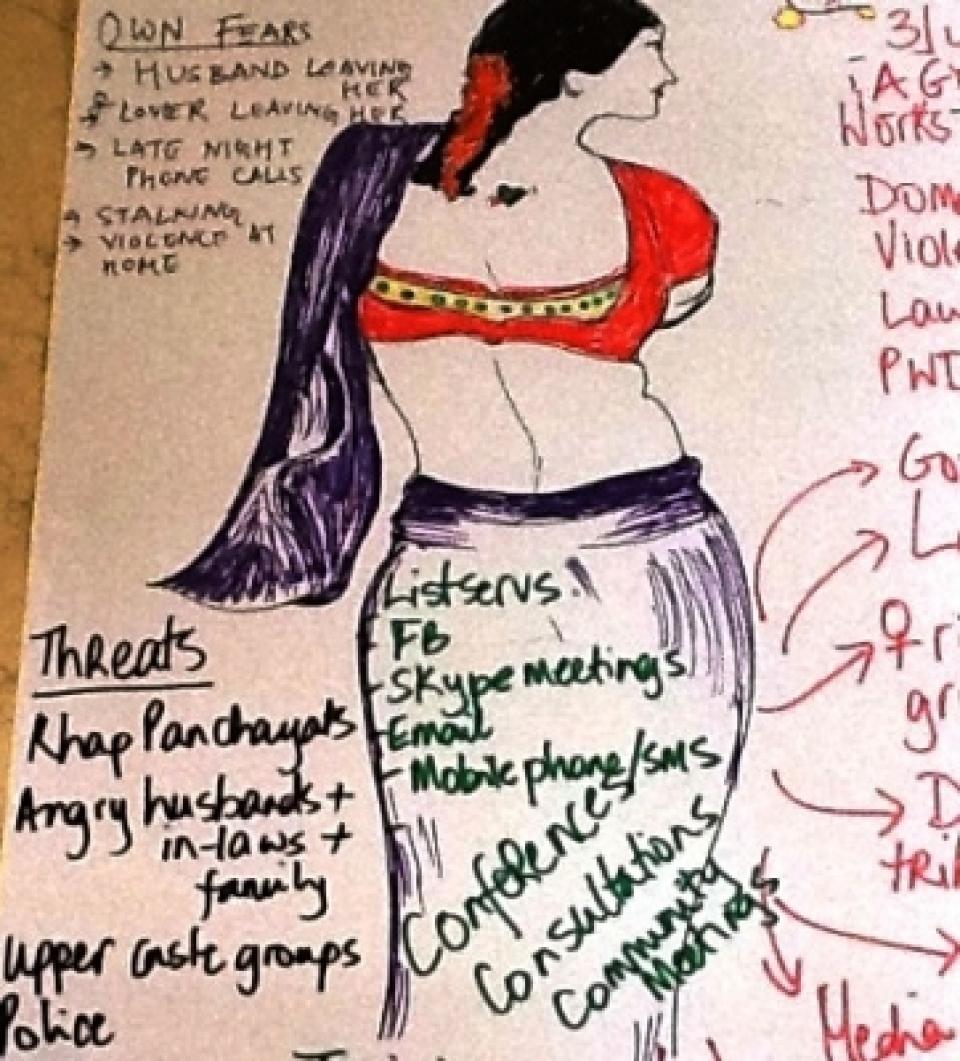 OWN FEARS
→ HUSBAND LEAVING
HER
→ LOVER LEAVING HER
→ LATE NIGHT
PHONE CALLS
→ STALKING
→ VIOLENCE AT
HOME
Threats
Khap Panchayats
Angry husbands +
in-laws +
family
Upper caste groups
Police
Listservs
- FB
- Skype meetings
- Email
- Mobile phone/SMS
Conferences
Consultations
Community
Meetings
Works
Media